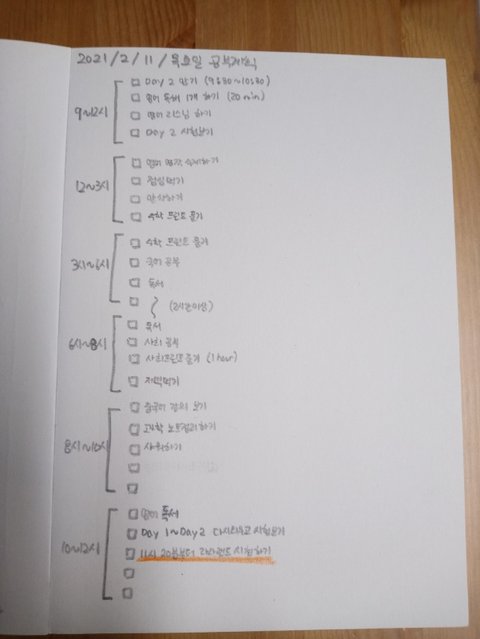 2021/2/11/목요일 공부계획
9~12시
Day 2 받기 (9:30~10:30)
영어 독해 1개 하기 (20 min)
영어 리스닝 하기
Day 2 시험보기
12~3시
영어 숙제하기
점심먹기
수학 프린트 풀기
3시~6시
수학 프린트 풀기
국어 공부
독서
(2시간이상)
6시~8시
독서
사회 공부
사회프린트 풀기 (1 hour)
저녁먹기
8시~10시
중국어 강의 보기
과학 노트정리하기
샤워하기
10~12시
영어 독서
Day 1~Day 2 다시외우고 시험보기
11시 20분부터 시청하기